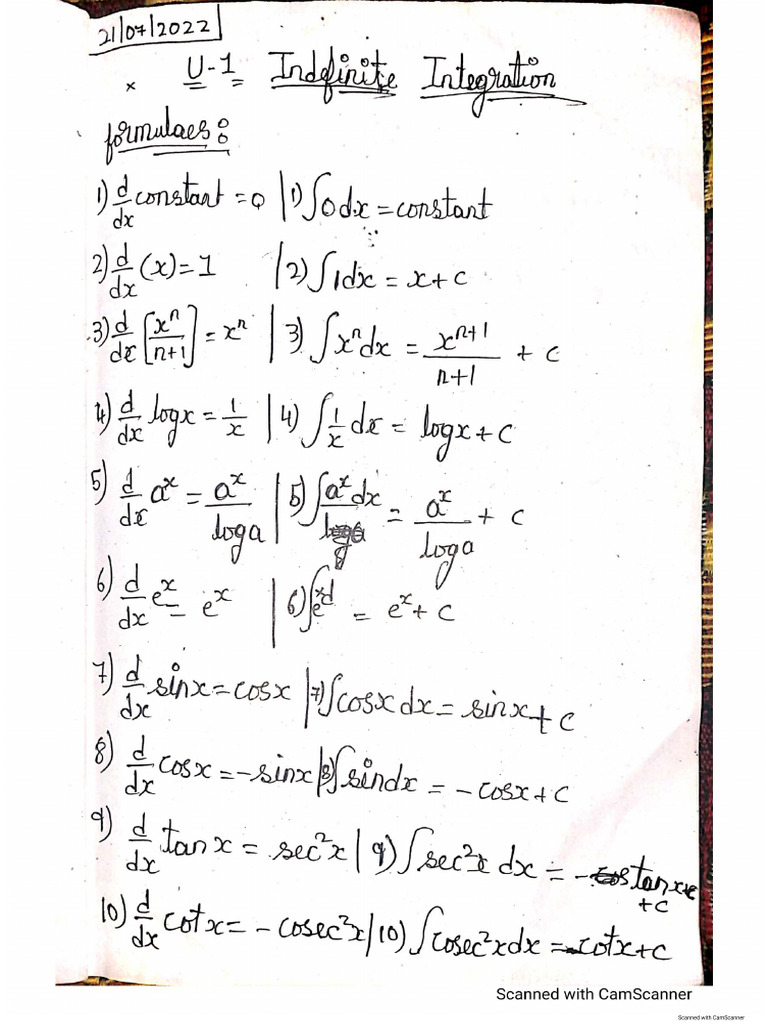 21/07/2022
× U-1 Indefinite Integration
formulaes:
1) d/dx constant = 0 | 1) ∫0 dx = constant
2) d/dx (x) = 1 | 2) ∫1dx = x + c
3) d/dx [xⁿ/n+1] = xⁿ | 3) ∫xⁿdx = xⁿ⁺¹/n+1 + c
4) d/dx logx = 1/x | 4) ∫1/x dx = logx + c
5) d/dx aˣ = aˣ/loga | 5) ∫aˣ dx = aˣ/loga + c
6) d/dx eˣ = eˣ | 6) ∫eˣd = eˣ + c
7) d/dx sinx = cosx | 7) ∫cosx dx = sinx + c
8) d/dx cosx = -sinx | 8) ∫sindx = -cosx + c
9) d/dx tanx = sec²x | 9) ∫sec²x dx = - tanx + c
10) d/dx cotx = -cosec²x | 10) ∫cosec²x dx = -cotx + c
Scanned with CamScanner
Scanned with CamScanner